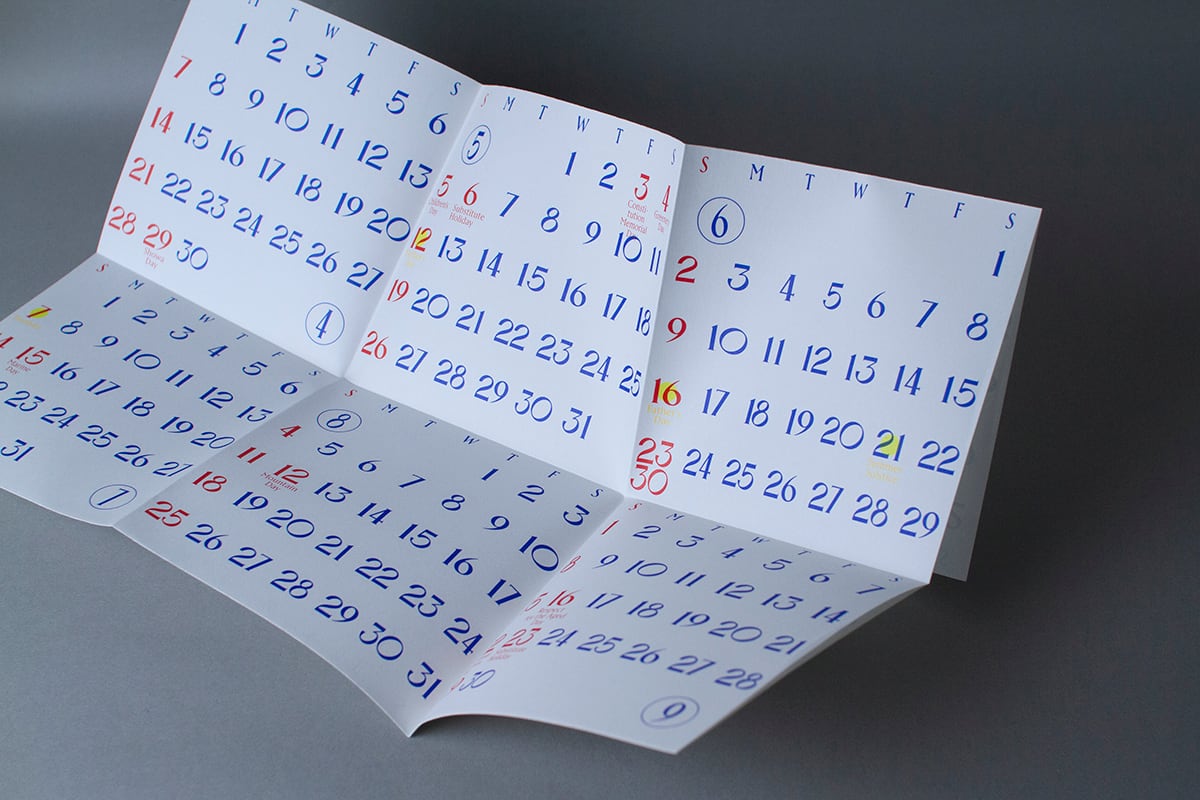 M T W T F S
1 2 3 4 5 6
7 8 9 10 11 12 13
14 15 16 17 18 19 20
21 22 23 24 25 26 27
28 29 30
Showa
Day
4
S M T W T F S
5
1 2 3 4
Consti-
tution
Memorial
Greenery
Day
5 6 7 8 9 10 11
Day
Substitute
Holiday
12 13 14 15 16 17 18
19 20 21 22 23 24 25
26 27 28 29 30 31
S M T W T F S
6
1
2 3 4 5 6 7 8
9 10 11 12 13 14 15
16 17 18 19 20 21 22
Father's
Day
Summer
Solstice
23 24 25 26 27 28 29
30
S M T W T F S
1 2 3 4 5 6
7 8 9 10 11 12 13
15 16 17 18 19 20
Marine
Day
23 24 25 26 27
31
7
S M T W T F S
8
1 2 3
4 5 6 7 8 9 10
11 12 13 14 15 16 17
Mountain
Day
18 19 20 21 22 23 24
25 26 27 28 29 30 31
S M T W T F S
1 2 3 4 5 6 7
8 9 10 11 12 13 14
5 16 17 18 19 20 21
Respect
for the Aged
Day
23 24 25 26 27 28
Substitute
Holiday
30
9